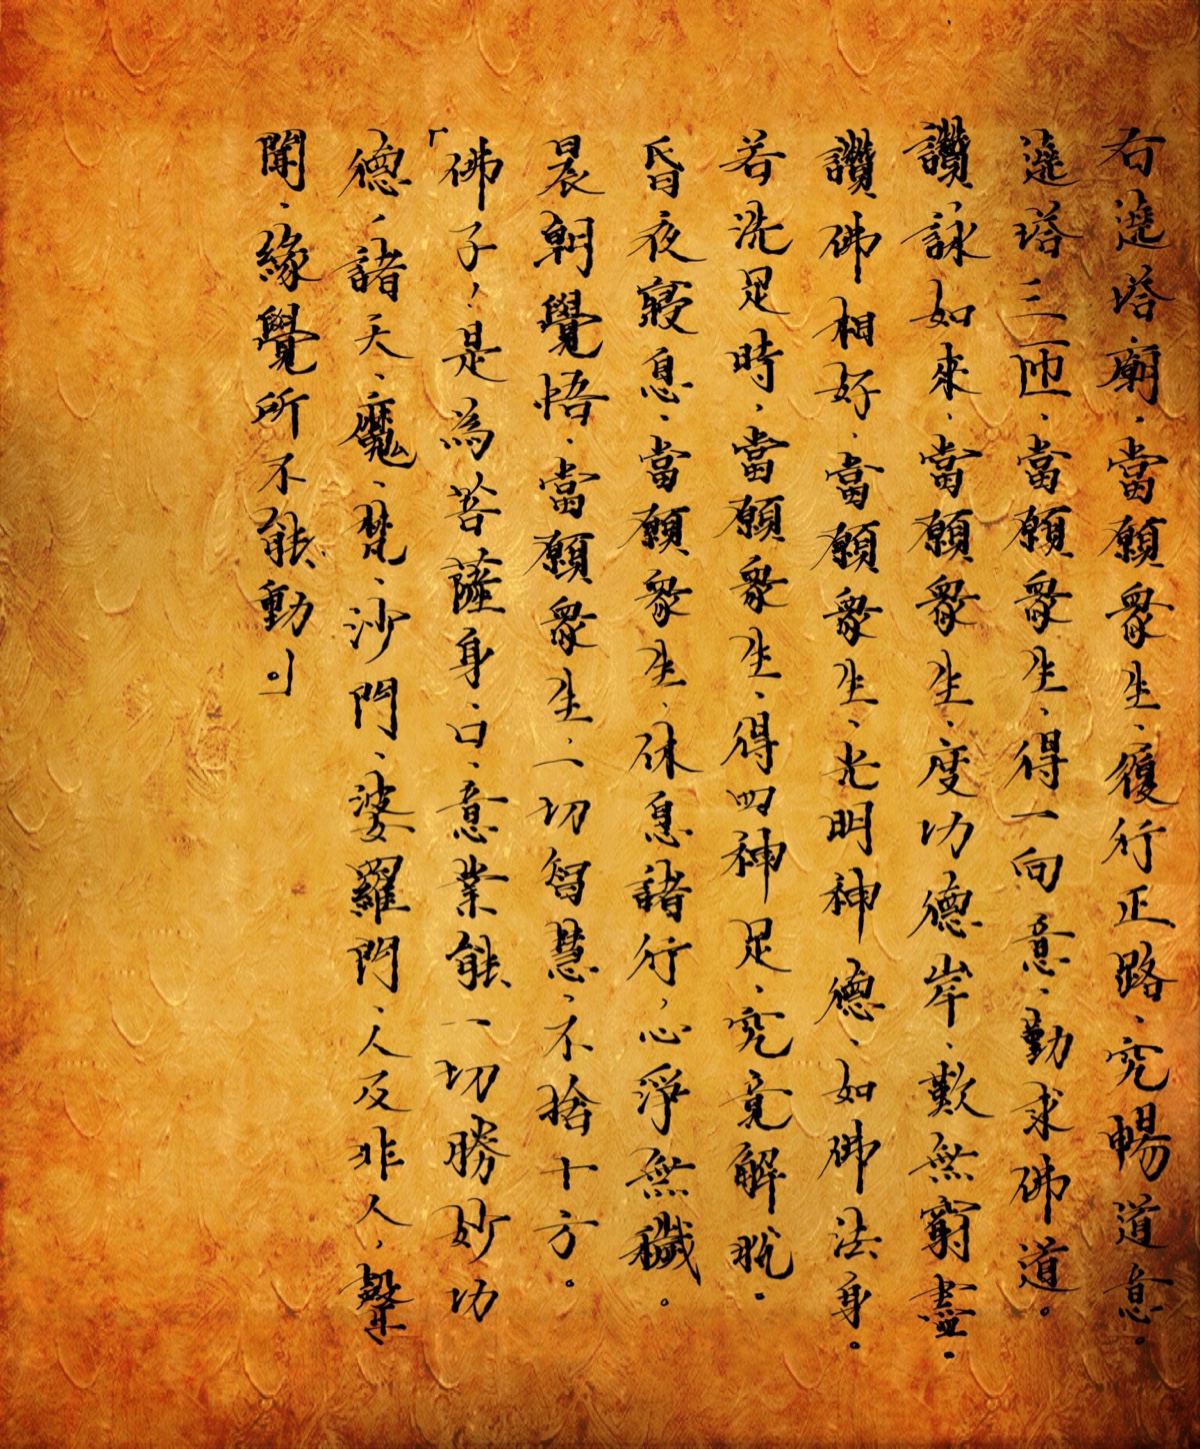 右遶塔廟、當願眾生、履行正路、究暢道意。
遶塔三匝、當願眾生、得一向意、勤求佛道。
讚詠如來、當願眾生、度功德岸、歎無窮盡。
讚佛相好、當願眾生、光明神德、如佛法身。
若洗足時、當願眾生、得四神足、究竟解脫。
昏夜寢息、當願眾生、休息諸行、心淨無穢。
晨朝覺悟、當願眾生、一切智慧、不捨十方。
「佛子！是為菩薩身、口、意業能一切勝妙功
德、諸天、魔、梵、沙門、婆羅門、人及非人、聲
聞、緣覺所不能動。」